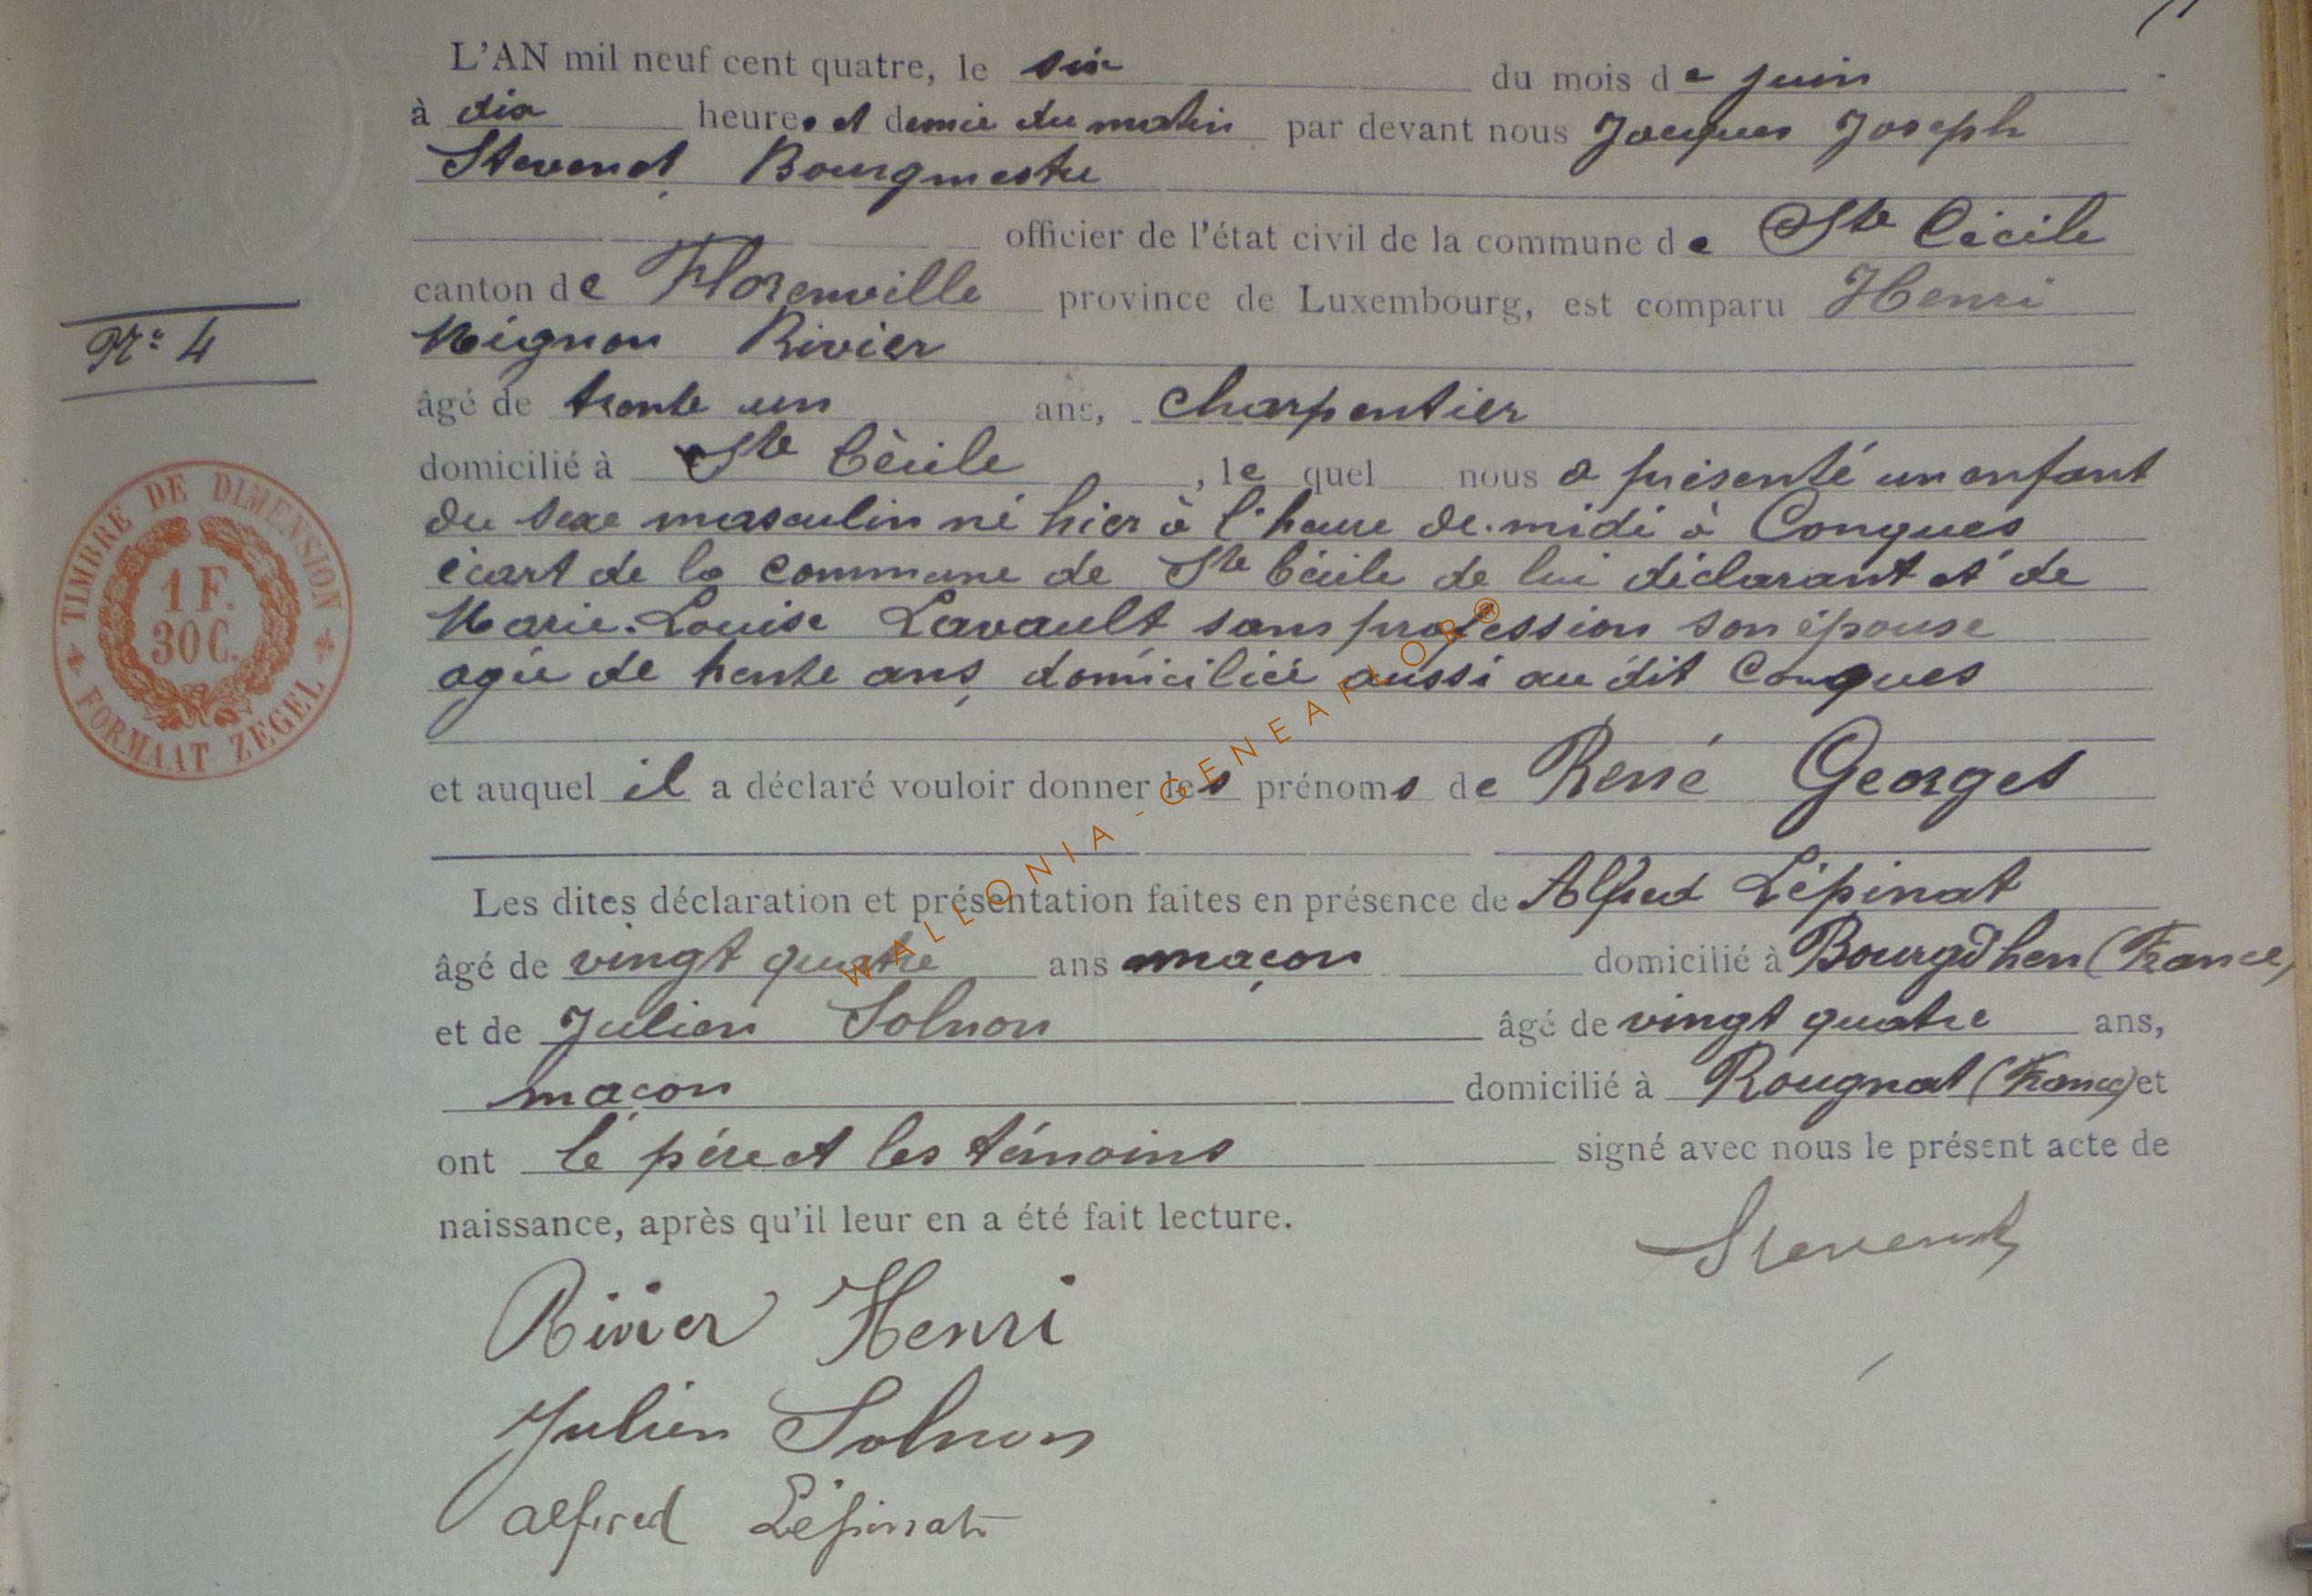 L'AN mil neuf cent quatre, le six du mois de juin
à dix heures et demie du matin par devant nous Jacques Joseph
Stevenot, Bourgmestre
officier de l'état civil de la commune de Ste Cécile
canton de Florenville province de Luxembourg, est comparu Henri
Mignon Rivier
N° 4
âgé de trente un ans, charpentier
domicilié à Ste Cécile, lequel nous a présenté un enfant
du sexe masculin né hier à l'heure de midi à Conques
écart de la commune de Ste Cécile de lui déclarant et de
Marie-Louise Lavault sans profession son épouse
agée de trente ans, domiciliée aussi au dit Conques
TIMBRE DE DIMENSION
1 F.
30 C.
FORMAAT ZEGEL
et auquel il a déclaré vouloir donner les prénoms de René Georges
Les dites déclaration et présentation faites en présence de Alfred Lépinat
âgé de vingt quatre ans maçon domicilié à (France)
et de Julien Solnon âgé de vingt quatre ans,
maçon domicilié à Rougnat (France) et
ont le père et les témoins signé avec nous le présent acte de
naissance, après qu'il leur en a été fait lecture.
Stevenot
Rivier Henri
Julien Solnon
alfred Lépinat
WALLONIA - GENEAFLOR®